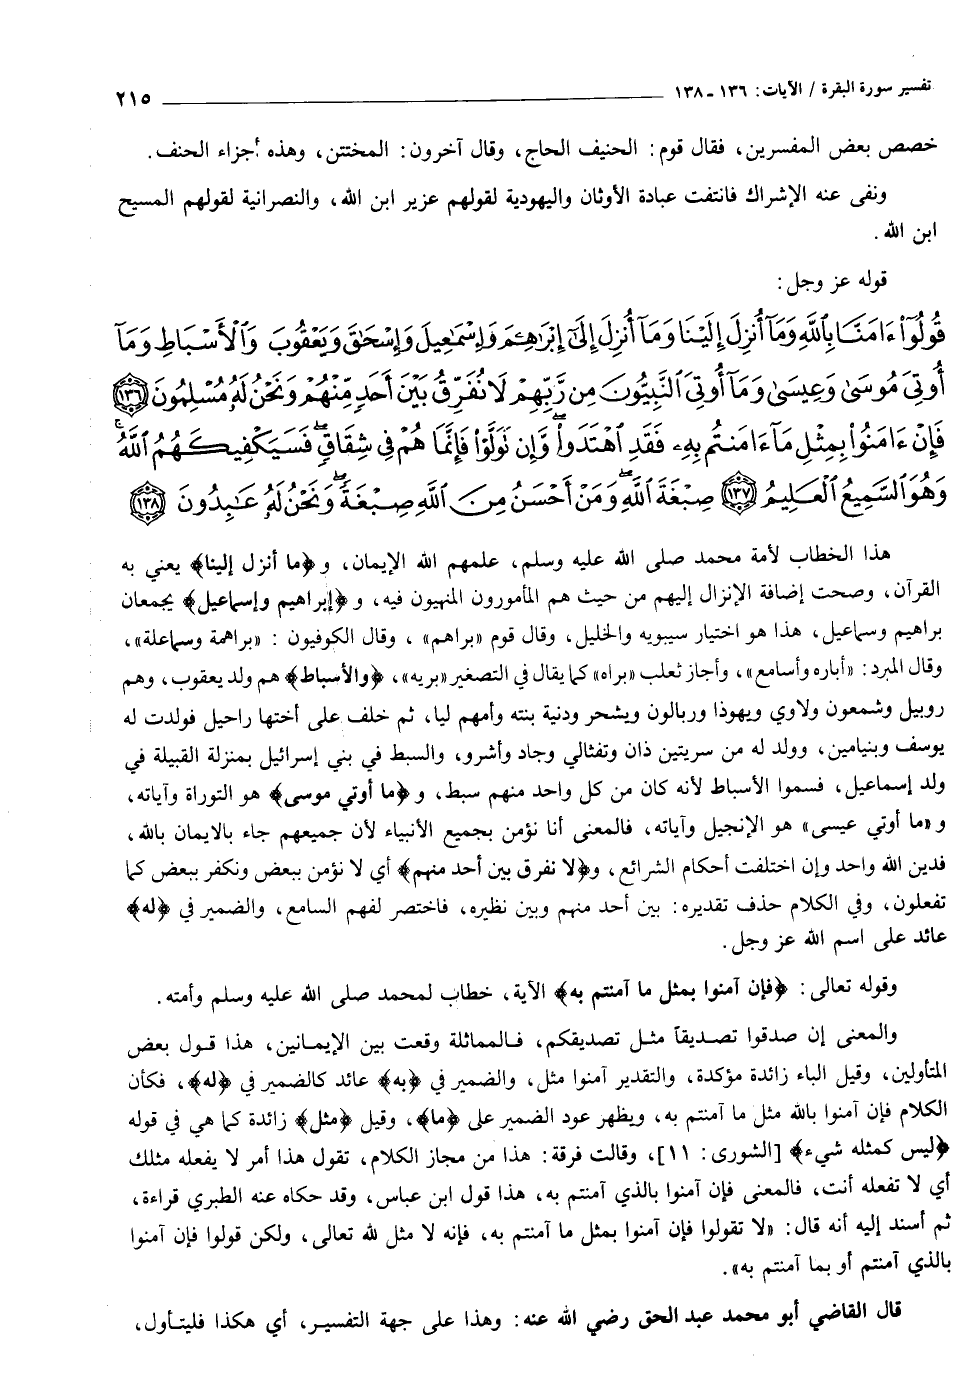 تفسير سورة البقرة / الآيات: ١٣٦ - ١٣٨ ٢١٥
خصص بعض المفسرين، فقال قوم: الحنيف الحاج، وقال آخرون: المختتن، وهذه أجزاء الحنف.
ونفى عنه الإشراك فانتفت عبادة الأوثان واليهودية لقولهم عزير ابن الله، والنصرانية لقولهم المسيح
ابن الله.
قوله عز وجل:
قُولُوٓا۟ ءَامَنَّا بِٱللَّهِ وَمَآ أُنزِلَ إِلَيْنَا وَمَآ أُنزِلَ إِلَىٰٓ إِبْرَٰهِـۧمَ وَإِسْمَٰعِيلَ وَإِسْحَٰقَ وَيَعْقُوبَ وَٱلْأَسْبَاطِ وَمَآ
أُوتِىَ مُوسَىٰ وَعِيسَىٰ وَمَآ أُوتِىَ ٱلنَّبِيُّونَ مِن رَّبِّهِمْ لَا نُفَرِّقُ بَيْنَ أَحَدٍ مِّنْهُمْ وَنَحْنُ لَهُۥ مُسْلِمُونَ ١٣٦
فَإِنْ ءَامَنُوا۟ بِمِثْلِ مَآ ءَامَنتُم بِهِۦ فَقَدِ ٱهْتَدَوا۟ ۖ وَّإِن تَوَلَّوْا۟ فَإِنَّمَا هُمْ فِى شِقَاقٍ ۖ فَسَيَكْفِيكَهُمُ ٱللَّهُ ۚ
وَهُوَ ٱلسَّمِيعُ ٱلْعَلِيمُ ١٣٧ صِبْغَةَ ٱللَّهِ ۖ وَمَنْ أَحْسَنُ مِنَ ٱللَّهِ صِبْغَةً ۖ وَنَحْنُ لَهُۥ عَٰبِدُونَ ١٣٨
هذا الخطاب لأمة محمد صلى الله عليه وسلم، علمهم الله الإيمان، و ﴿ما أنزل إلينا﴾ يعني به
القرآن، وصحت إضافة الإنزال إليهم من حيث هم المأمورون المنهيون فيه، و ﴿إبراهيم وإسماعيل﴾ يجمعان
براهيم وسماعيل، هذا هو اختيار سيبويه والخليل، وقال قوم «براهم» ، وقال الكوفيون : «براهمة وسماعلة»،
وقال المبرد: «أباره وأسامع»، وأجاز ثعلب «براه» كما يقال في التصغير «بريه»، ﴿والأسباط﴾ هم ولد يعقوب، وهم
روبيل وشمعون ولاوي ويهوذا وربالون ويشحر ودنية بنته وأمهم ليا، ثم خلف على أختها راحيل فولدت له
يوسف وبنيامين، وولد له من سريتين ذان وتفثالي وجاد وأشرو، والسبط في بني إسرائيل بمنزلة القبيلة في
ولد إسماعيل، فسموا الأسباط لأنه كان من كل واحد منهم سبط، و ﴿ما أوتي موسى﴾ هو التوراة وآياته،
و «ما أوتي عيسى» هو الإنجيل وآياته، فالمعنى أنا نؤمن بجميع الأنبياء لأن جميعهم جاء بالايمان بالله،
فدين الله واحد وإن اختلفت أحكام الشرائع، و﴿لا نفرق بين أحد منهم﴾ أي لا نؤمن ببعض ونكفر ببعض كما
تفعلون، وفي الكلام حذف تقديره: بين أحد منهم وبين نظيره، فاختصر لفهم السامع، والضمير في ﴿له﴾
عائد على اسم الله عز وجل.
وقوله تعالى: ﴿فإن آمنوا بمثل ما آمنتم به﴾ الآية، خطاب لمحمد صلى الله عليه وسلم وأمته.
والمعنى إن صدقوا تصديقاً مثل تصديقكم، فالمماثلة وقعت بين الإيمانين، هذا قول بعض
المتأولين، وقيل الباء زائدة مؤكدة، والتقدير آمنوا مثل، والضمير في ﴿به﴾ عائد كالضمير في ﴿له﴾، فكأن
الكلام فإن آمنوا بالله مثل ما آمنتم به، ويظهر عود الضمير على ﴿ما﴾، وقيل ﴿مثل﴾ زائدة كما هي في قوله
﴿ليس كمثله شيء﴾ [الشورى: ١١]، وقالت فرقة: هذا من مجاز الكلام، تقول هذا أمر لا يفعله مثلك
أي لا تفعله أنت، فالمعنى فإن آمنوا بالذي آمنتم به، هذا قول ابن عباس، وقد حكاه عنه الطبري قراءة،
ثم أسند إليه أنه قال: «لا تقولوا فإن آمنوا بمثل ما آمنتم به، فإنه لا مثل لله تعالى، ولكن قولوا فإن آمنوا
بالذي آمنتم أو بما آمنتم به».
قال القاضي أبو محمد عبد الحق رضي الله عنه: وهذا على جهة التفسير، أي هكذا فليتأول،